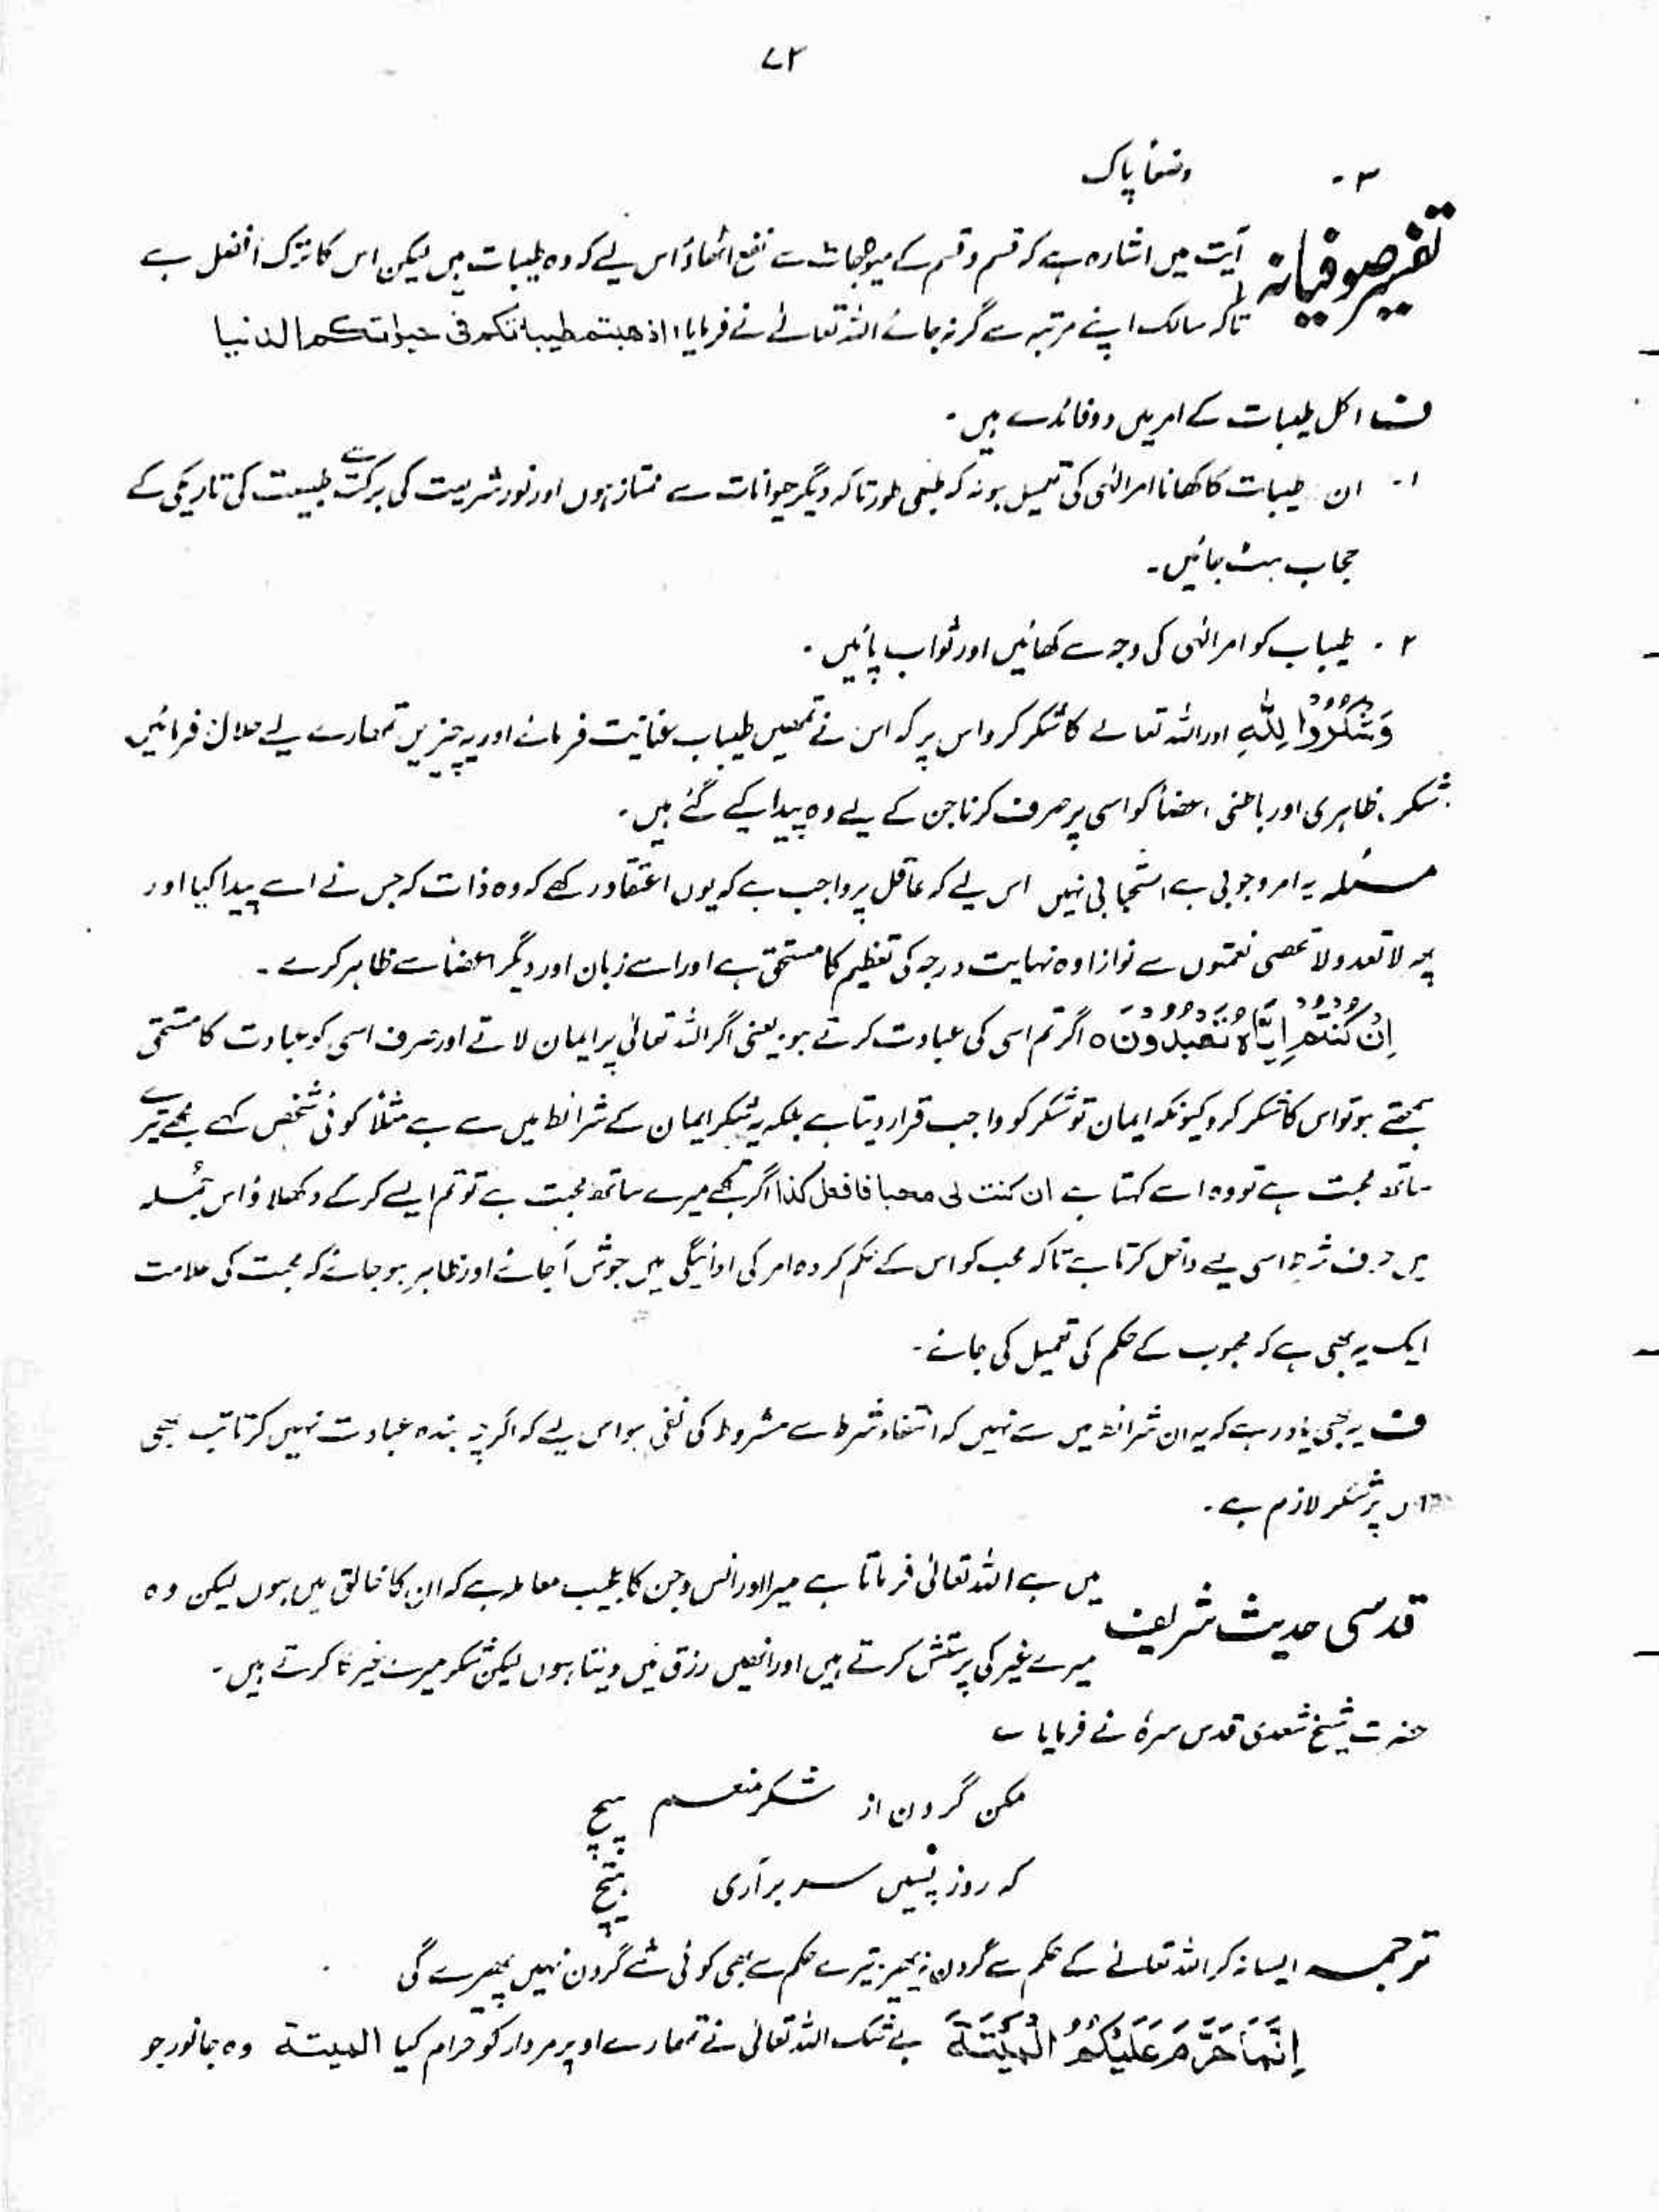 ۷۲
۳- وضعاً پاک
تفسیر صوفیانہ آیت میں اشارہ ہے کہ قسم و قسم کے میوہ جات سے نفع اٹھاؤ اس لیے کہ وہ طیبات ہیں لیکن اس کا ترک افضل ہے
تاکہ سالک اپنے مرتبہ سے گر نہ جائے اللہ تعالےٰ نے فرمایا، اذهبتم طیباتکم فی حیواتکم الدنیا
ف اکل طیبات کے امر میں دو فائدے ہیں۔
۱- ان طیبات کا کھانا امر الٰہی کی تعمیل ہو نہ کہ طبعی طور تاکہ دیگر حیوانات سے ممتاز ہوں اور نور شریعت کی برکت سے طبیعت کی تاریکی کے
حجاب ہٹ جائیں۔
۲- طیباب کو امر الٰہی کی وجہ سے کھائیں اور ثواب پائیں۔
وَشْكُرُوْا لِلّٰهِ اور اللہ تعالےٰ کا شکر کرو اس پر کہ اس نے تمھیں طیباب عنایت فرمائے اور یہ چیزیں تمھارے لیے حلال فرمائیں
شکر، ظاہری اور باطنی اعضأ کو اسی پر صرف کرنا جن کے لیے وہ پیدا کیے گئے ہیں۔
مسئلہ یہ امر وجوبی ہے استحبابی نہیں اس لیے کہ عاقل پر واجب ہے کہ یوں اعتقاد رکھے کہ وہ ذات کہ جس نے اسے پیدا کیا اور
پھر لا تعد ولا تحصی نعمتوں سے نوازا وہ نہایت درجہ کی تعظیم کا مستحق ہے اور اسے زبان اور دیگر اعضأ سے ظاہر کرے۔
اِنْ كُنْتُمْ اِيَّاهُ تَعْبُدُوْنَ ہ اگر تم اسی کی عبادت کرتے ہو، یعنی اگر اللہ تعالیٰ پر ایمان لاتے اور صرف اسی کو عبادت کا مستحق
سمجھتے ہو تو اس کا شکر کرو کیونکہ ایمان تو شکر کو واجب قرار دیتا ہے بلکہ یہ شکر ایمان کے شرائط میں سے ہے مثلاً کوئی شخص کہے مجھے تیرے
ساتھ محبت ہے تو وہ اسے کہتا ہے ان کنت لی محبا فافعل کذا اگر تجھے میرے ساتھ محبت ہے تو تم ایسے کر کے دکھلاؤ اس جُملہ
میں حرف شرط اسی لیے داخل کرتا ہے تاکہ محب کو اس کے حکم کردہ امر کی ادائیگی میں جوش آ جائے اور ظاہر ہو جائے کہ محبت کی علامت
ایک یہ بھی ہے کہ محبوب کے حکم کی تعمیل کی جائے۔
ف یہ بھی یاد رہے کہ یہ ان شرائط میں سے نہیں کہ انتفاء شرط سے مشروط کی نفی ہو اس لیے کہ اگرچہ بندہ عبادت نہیں کرتا تب بھی
اس پر شکر لازم ہے۔
قدسی حدیث شریف میں ہے اللہ تعالیٰ فرماتا ہے میرا اور انس و جن کا عجیب معاملہ ہے کہ ان کا خالق میں ہوں لیکن وہ
میرے غیر کی پرستش کرتے ہیں اور انھیں رزق میں دیتا ہوں لیکن شکر میرے غیر کا کرتے ہیں۔
حضرت شیخ سعدی قدس سرہٗ نے فرمایا ؎
مکن گردن از شکر منعم پیچ
کہ روز پسیں سر برآری بہیچ
ترجمہ ایسا نہ کر اللہ تعالےٰ کے حکم سے گردن نہ پھیر، تیرے حکم سے بھی کوئی شے گردن نہیں پھیرے گی
اِنَّمَا حَرَّمَ عَلَيْكُمُ الْمَيْتَةَ بے شک اللہ تعالیٰ نے تمھارے اوپر مردار کو حرام کیا المیتۃ وہ جانور جو